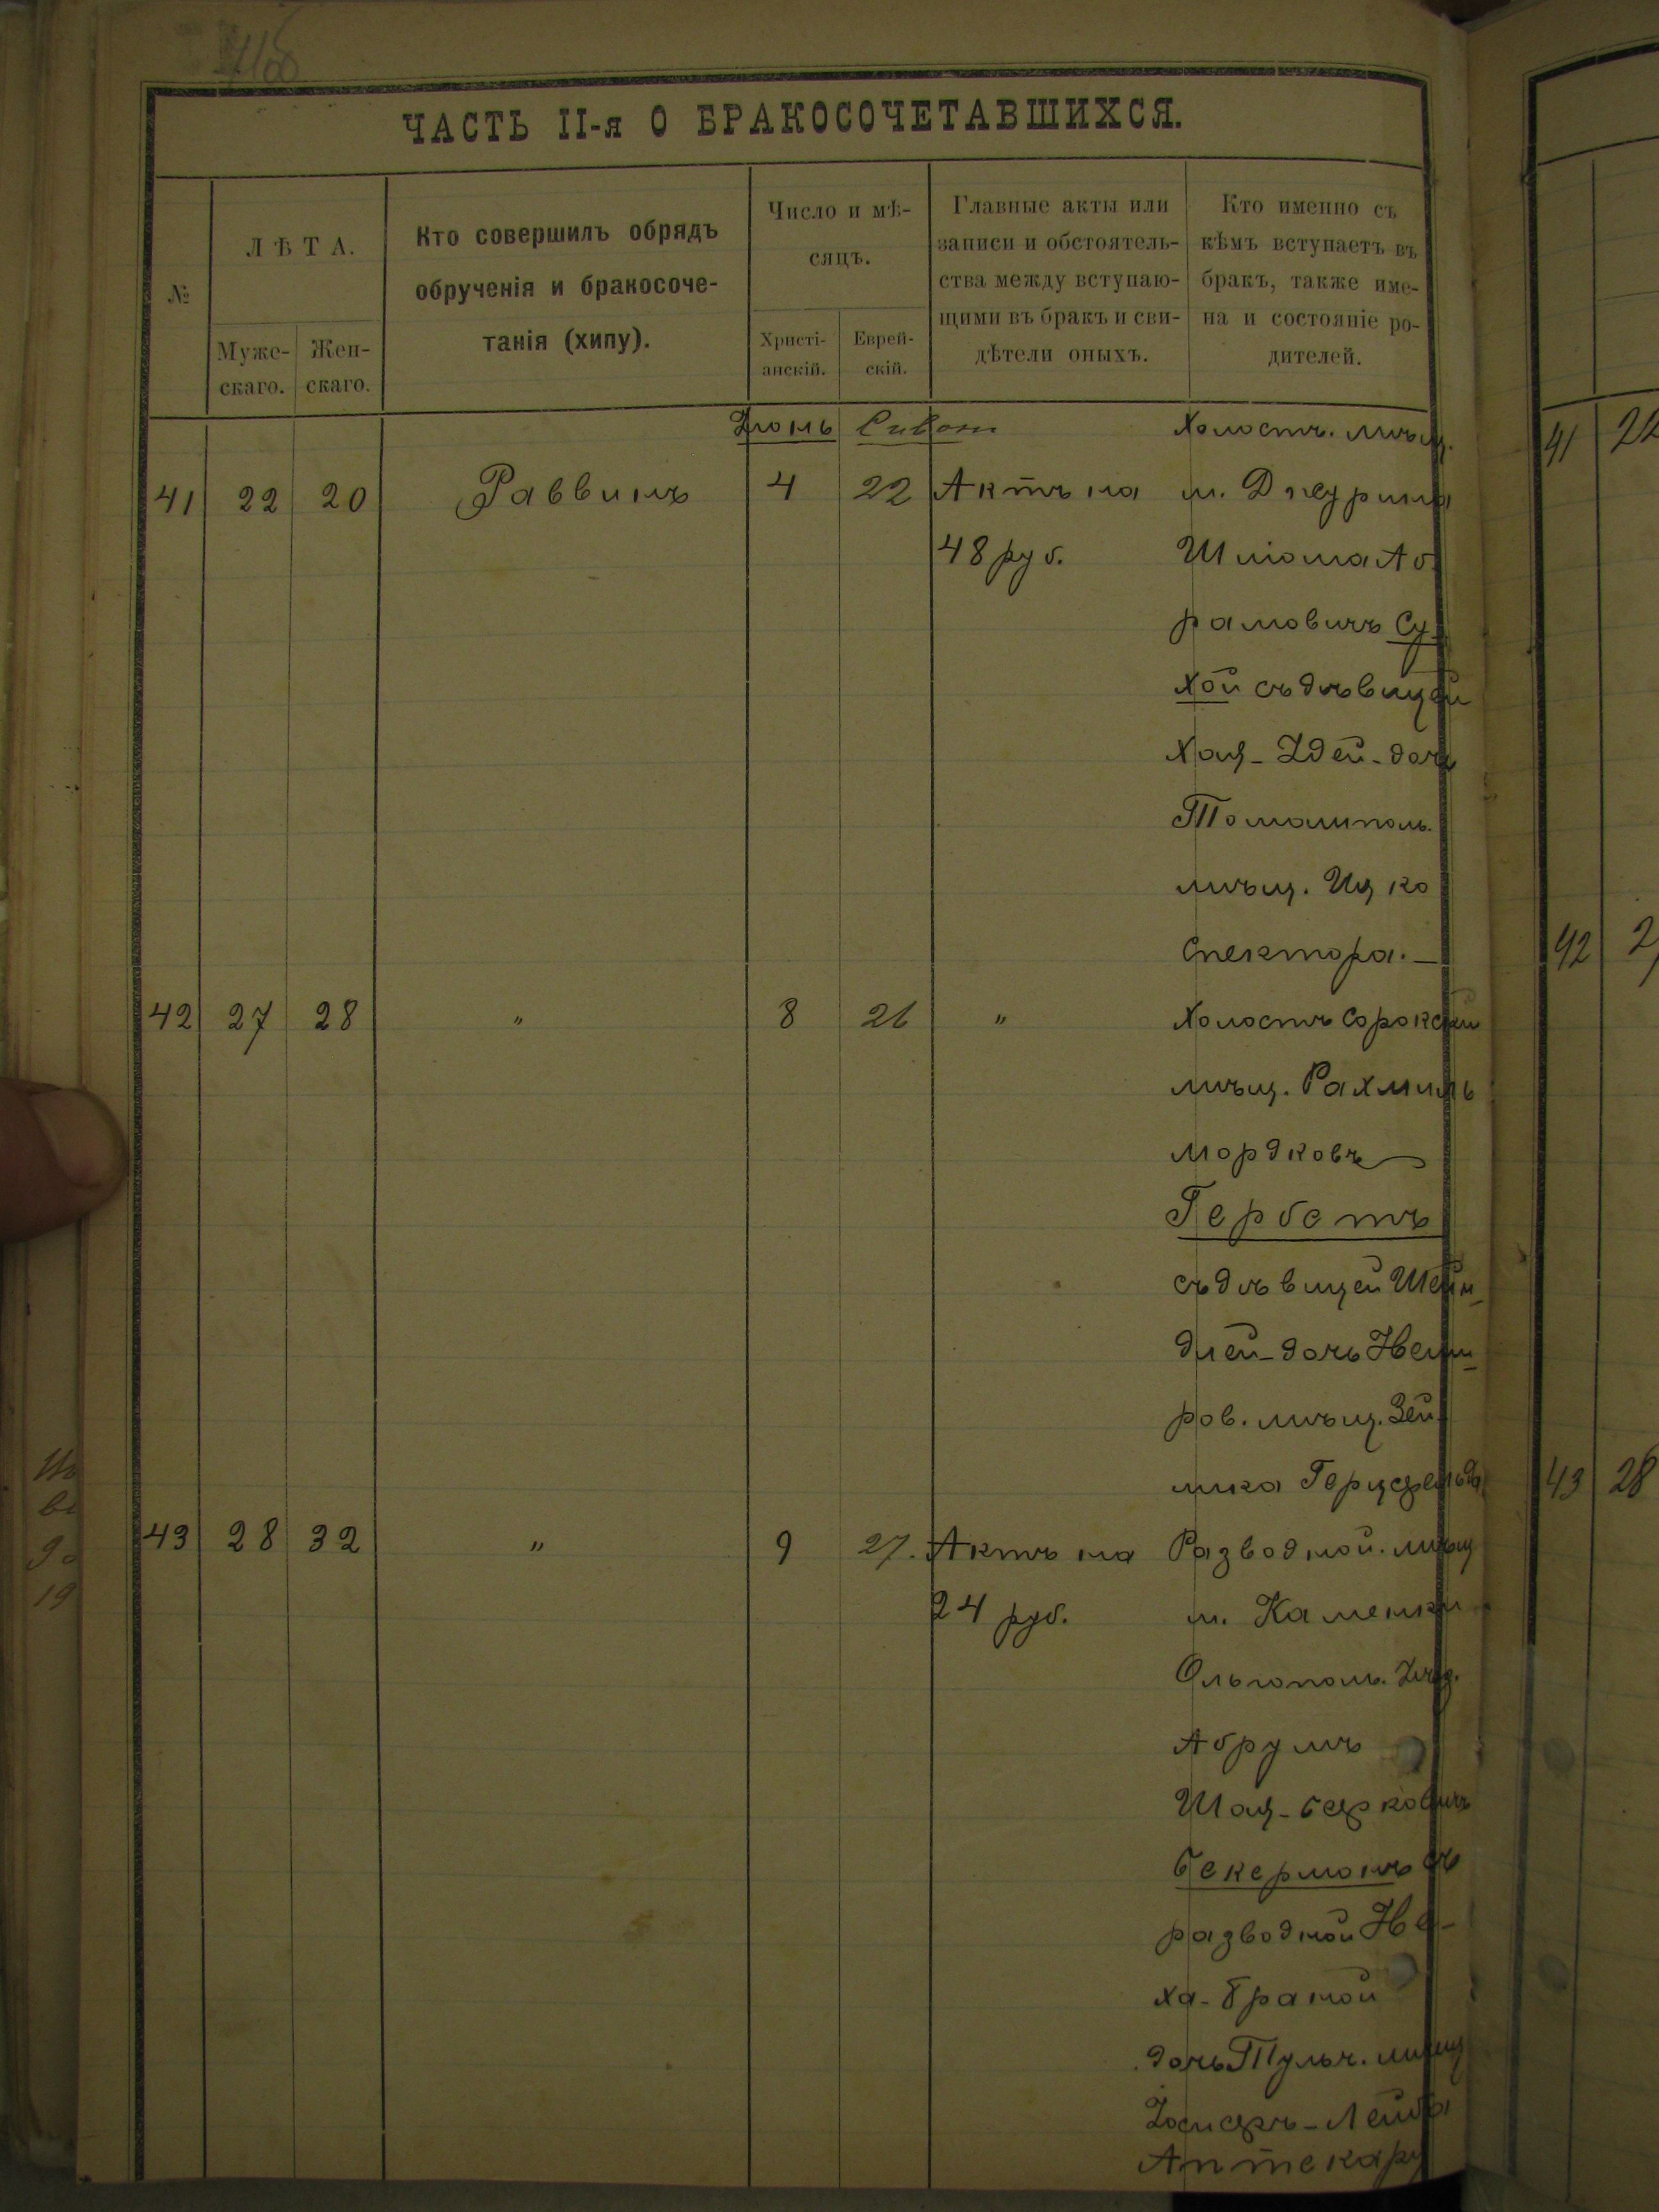 ЧАСТЬ II-я О БРАКОСОЧЕТАВШИХСЯ.
№
ЛѢТА.
Муже-
скаго.
Жен-
скаго.
Кто совершилъ обрядъ
обрученія и бракосоче-
танія (хипу).
Число и мѣ-
сяцъ.
Христі-
анскій.
Еврей-
скій.
Главные акты или
записи и обстоятель-
ства между вступаю-
щими въ бракъ и сви-
дѣтели оныхъ.
Кто именно съ
кѣмъ вступаетъ въ
бракъ, также име-
на и состояніе ро-
дителей.
Іюнь Сивон Холостъ. мѣщ.
41 22 20 Раввинъ 4 22 Актъ на м. Джурина
48 руб. Шлома Аб
рамовичъ Су
хой съ дѣвицей
Хая-Идей-дочь
Томашполь.
мѣщ. Ицко
Спектора.—
42 27 28 " 8 26 " Холостъ Сорокскій
мѣщ. Рахмиль
Мордковъ
Гербетъ
съ дѣвицей Шейн-
длей-дочь Неми-
ров. мѣщ. Зей-
лика Герцфельда
43 28 32 " 9 27. Актъ на Разводной. мѣщ
24 руб. м. Каменки
Ольгополь. Уѣзд.
Абрумъ
Шая-Берковичъ
Бекерманъ съ
разводной Не-
ха-Браной
дочь Тульч. мѣщ
Іосифъ-Лейба
Аптекару
41 22
42 2
43 28